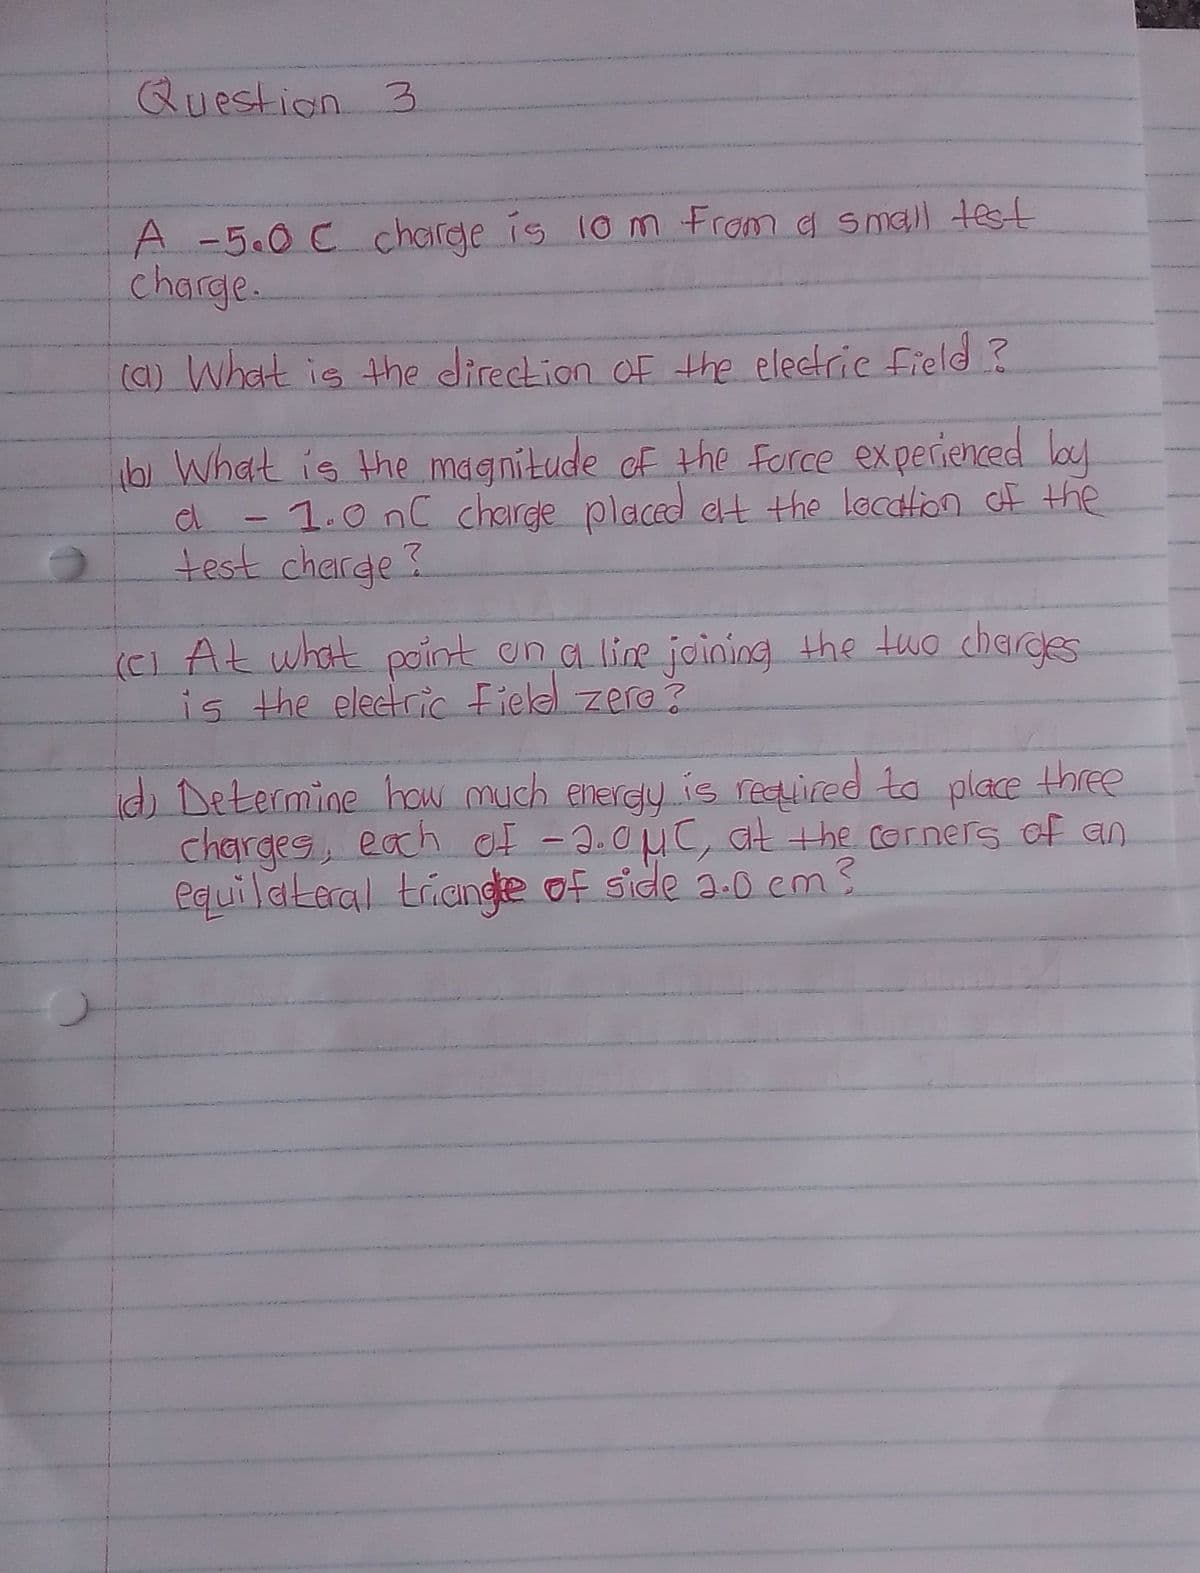 Question 3
A -5.0 C charge is 10 m from a small test
charge.
(a) What is the direction of the electric field?
(b) What is the magnitude of the force experienced by
a - 1.0 nC charge placed at the location of the
test charge?
(c) At what point on a line joining the two charges
is the electric field zero?
(d) Determine how much energy is required to place three
charges, each of -2.0 μC, at the corners of an
equilateral triangle of side 2.0 cm?